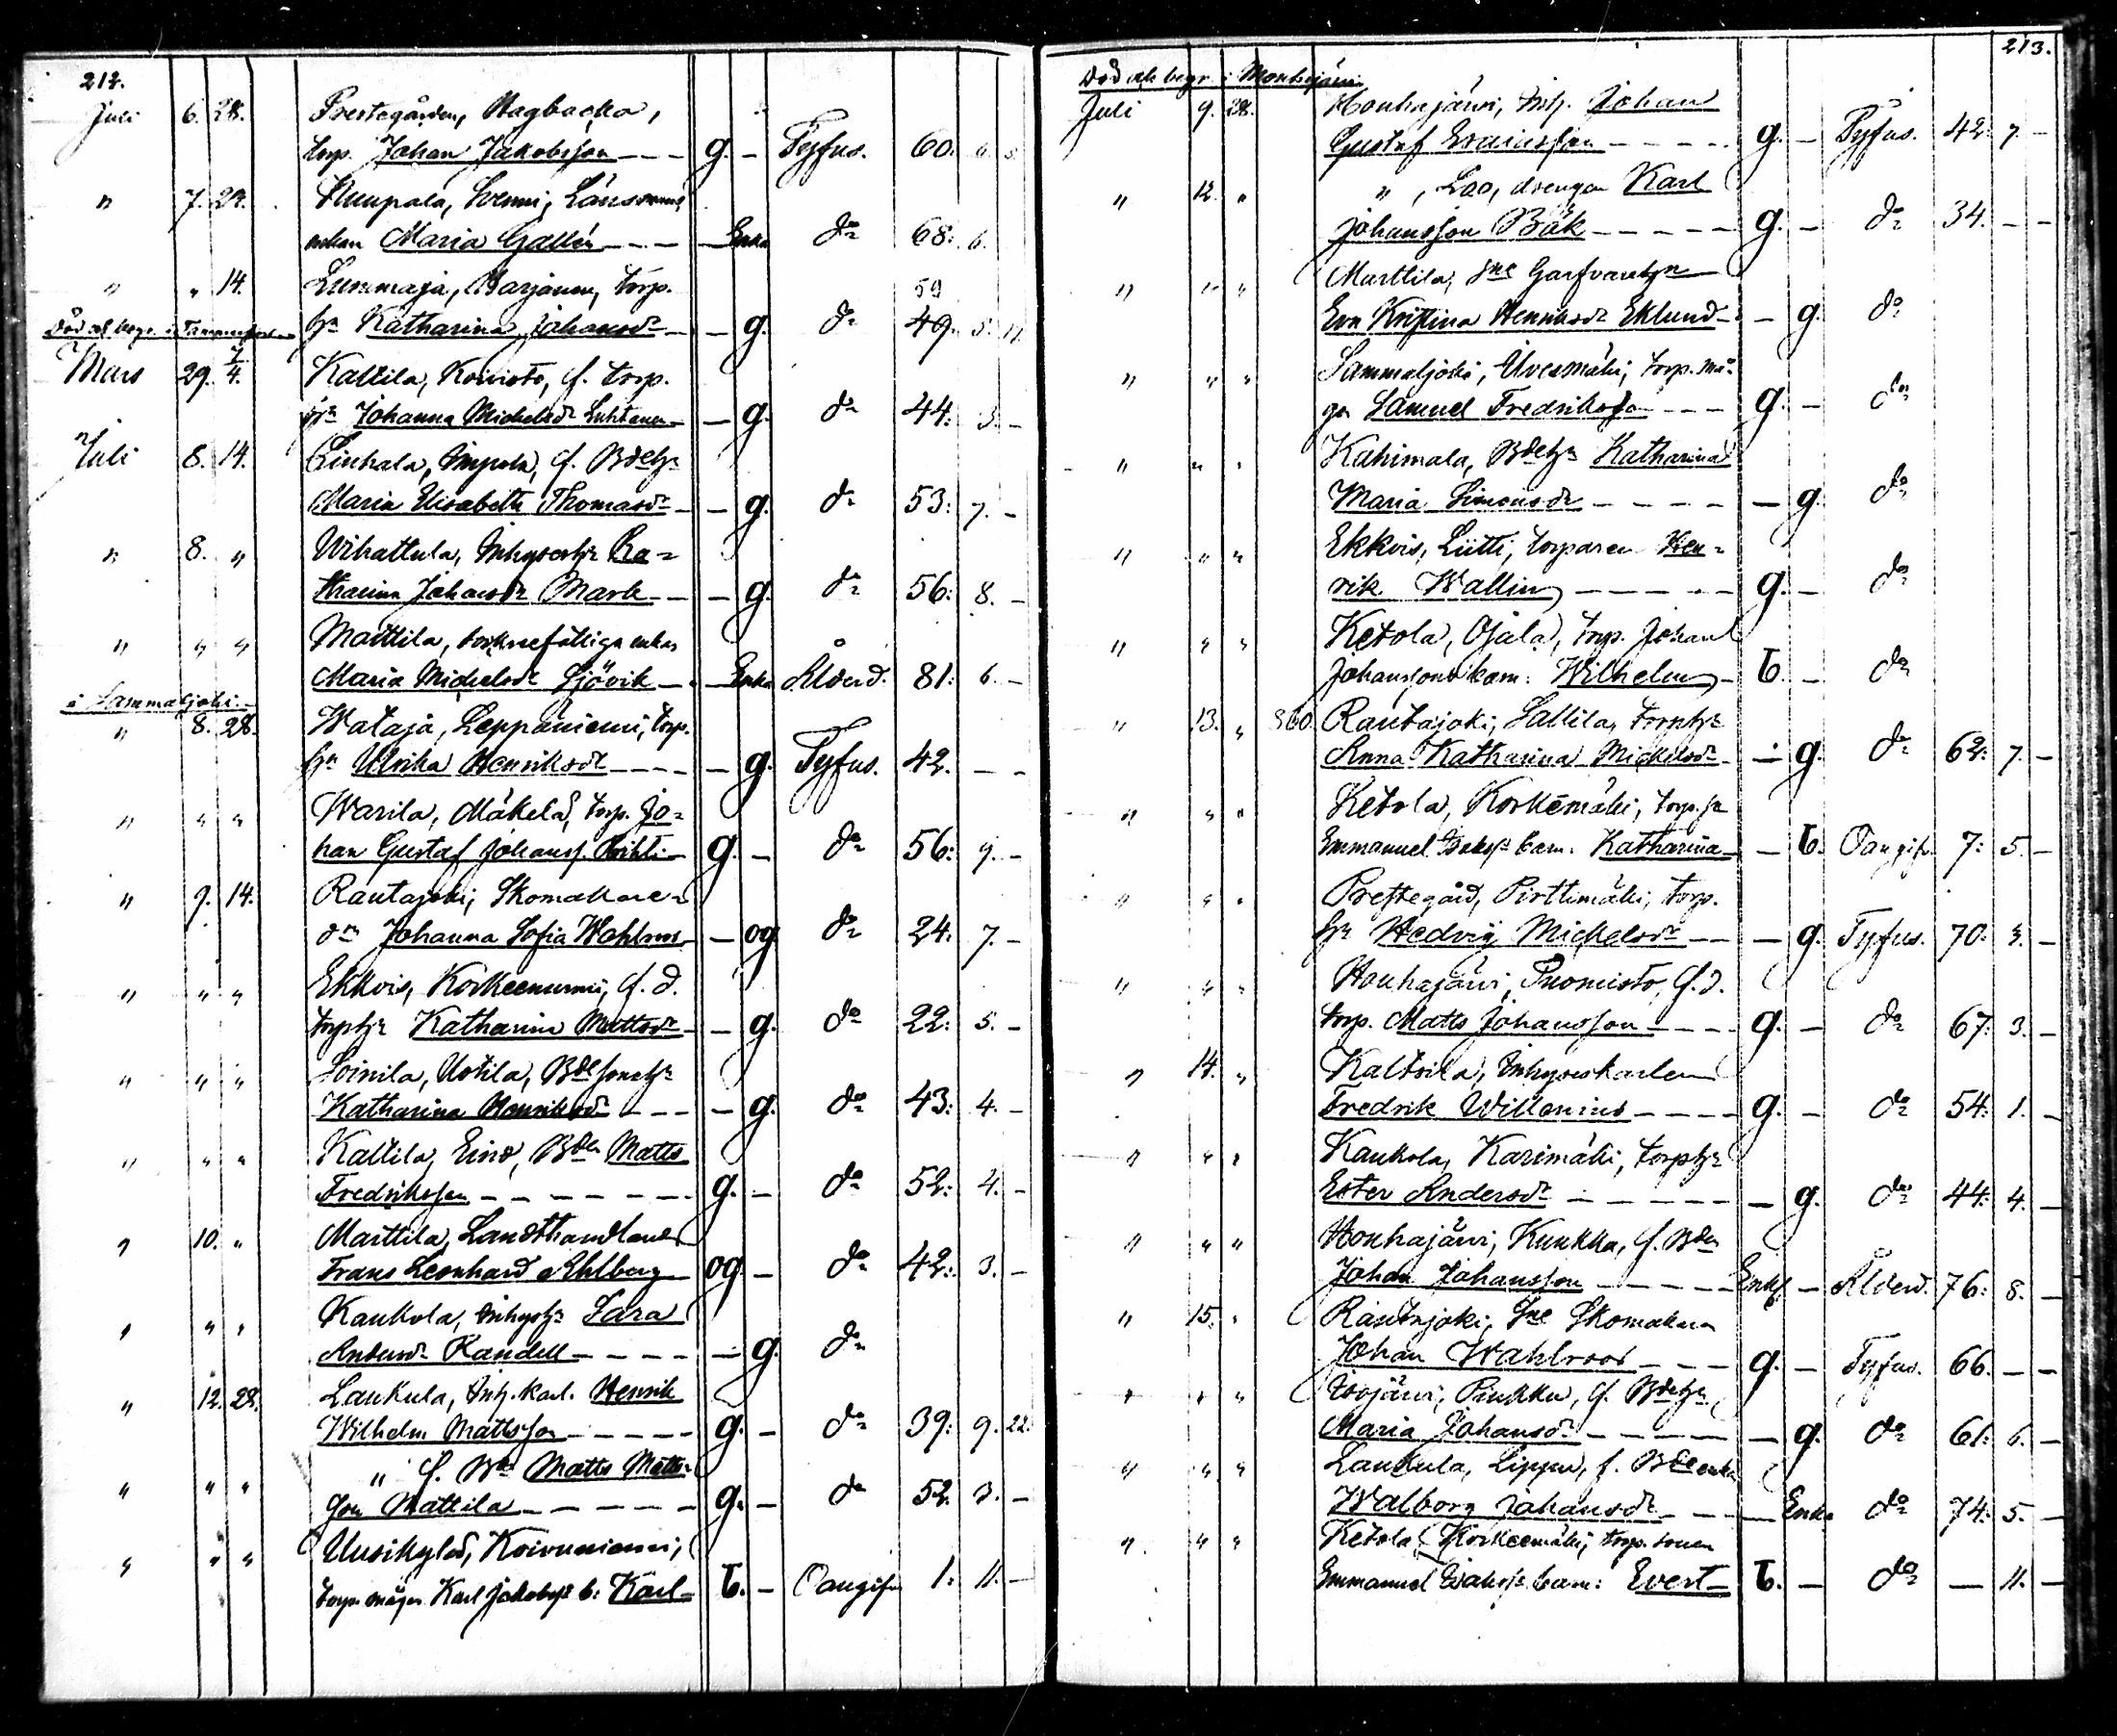 212.
Juli 6. 28. Prestegården, Hagbacka,
torp. Johan Jakobsson - - - g. - Tyfus. 60.
" 7. 28. Nuupala, Länsmans
enkan Maria Gallén - - - Enka do 68: 6.
" " 14. Lummaja, Harjunen, torp. 59
hu Katharina Johansdr - - g. do 49. 5.
Död ok begr. i Tammerfors
Mars 29. 7/4. Kaltila, Koivisto, f. torp.
Johanna Michelsdr Luhtanen - - g. do 44: 3. -
Juli 8. 14. Liuhala, f. Bdehu
Maria Elisabeth Thomasdr - - g. do 53: 7. -
" 8. " Wihattula, Inhyseshu Ka-
tharina Johansdr Mark - - - g. do 56: 8. -
" " " Marttila, enkan
Maria Michelsdr Sjövik - Enka Ålderd. 81: 6. -
i Sammaljoki.
" 8. 28. Wataja, Leppäniemi, torp.
hu Ulrika Henriksdr - - - - - g. Tyfus. 42. - -
" " " Warila, Mäkelä, torp. Jo-
han Gustaf Johanss. - g. - do 56: 9. -
" 9. 14. Rautajoki, Skomakare-
dr Johanna Sofia Wahlroos - - og do 24: 7. -
" " " Ekkois, Korkeenurmi, f. d.
torphu Katharina Mattsdr - - g. do 22: 5. -
" " " Soinila, Uotila, Bdesonehu
Katharina Henriksdr - - - - g. do 43: 4. -
" " " Kaltila, Eino, Bden Matts
Fredriksson - - - - - - - g. - do 52: 4. -
" 10. " Marttila, Landthandlanden
Frans Leonhard Ahlberg - og - do 42: 3. -
" " " Kaukola, Inhyshu Sara
Andersdr Randell - - - - - g. do
" 12. 28. Laukula, Inh. karl. Henrik
Wilhelm Mattsson - - - - - g. - do 39: 9. 22.
" " " " f. Bde Matts Matts-
son Mattila - - - - - g. - do 52. 3. -
" " " Uusikylä, Koivuniemi,
torp. mågen Karl Jakobss b: Karl - b. - Oangifn 1: 11. -
213.
Död ok begr. i Mouhijärvi
Juli 9. 28. Houhajärvi, Inh. Johan
Gustaf - - - - - g. - Tyfus. 42: 7. -
" 12. " ", drengen Karl
Johansson Bäk - - - - - g. - do 34. - -
" " " Marttila, fde Garfvarehu
Eva Kristina Henriksdr Eklund - - g. do
" " " Sammaljoki, torp. må-
gen Samuel Fredriksson - - - g. - do
" " " Kahimala, Bdehu Katharina
Maria Simonsdr - - - - - g. do
" " " Ekkois, Liitti, torparen Hen-
rik Wallin - - - - - g. - do
" " " Ketola, Ojala, torp. Johan
Johanssons barn: Wilhelm - b. - do
" 13. " 360 Rautajoki, Sallila, torphu
Anna Katharina Michelsdr - - g. do 62: 7. -
" " " Ketola, Korkemäki, torp. s.
Emmanuel Isakss barn. Katharina - - b. Oangifn 7: 5. -
" " " Prestegård, Pirttimäki, torp.
hu Hedvig Michelsdr - - - g. Tyfus. 70: 3. -
" " " Houhajärvi, Tuomisto, f. d.
torp. Matts Johansson - - - - g. - do 67: 3. -
" 14. " Kaltsila, Inhyseskarlen
Fredrik Willenius - - - - g. - do 54: 1. -
" " " Kaukola, Karimäki, torphu
Ester Andersdr - - - - - - g. do 44: 4. -
" " " Houhajärvi, Kunkka, f. Bden
Johan Johansson - - - - - Enkl. - Ålderd. 76: 8. -
" 15. " Rautajoki, fde Skomakaren
Johan Wahlroos - - - g. - Tyfus. 66. - -
" " " Isojärvi, Pinkku, f. Bdehu
Maria Johansdr - - - - - - g. do 61: 6. -
" " " Laukula, Lippu, f. Bdeenka
Walborg Johansdr - - - Enka do 74: 5. -
" " " Ketola, Korkeemäki, torp. sonen
Emmanuel Isakss. barn: Evert - b. - do - 11. -